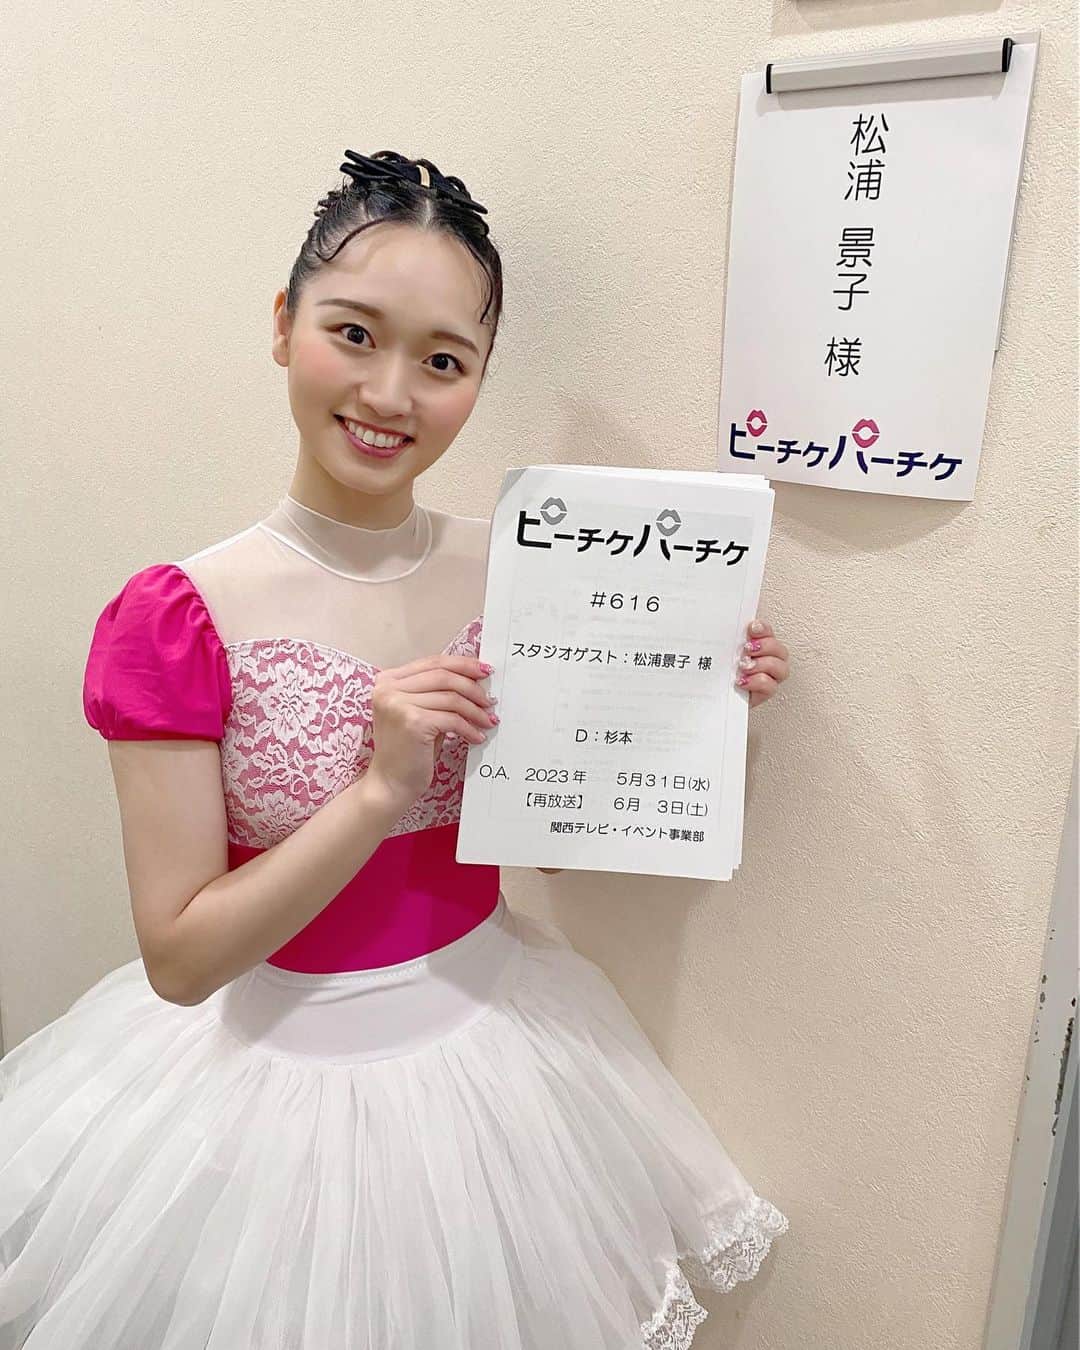 松浦 景子 様
ピーチケパーチケ
ピーチケパーチケ
#616
スタジオゲスト：松浦景子 様
D：杉本
O.A. 2023年 5月31日(水)
【再放送】 6月 3日(土)
関西テレビ・イベント事業部